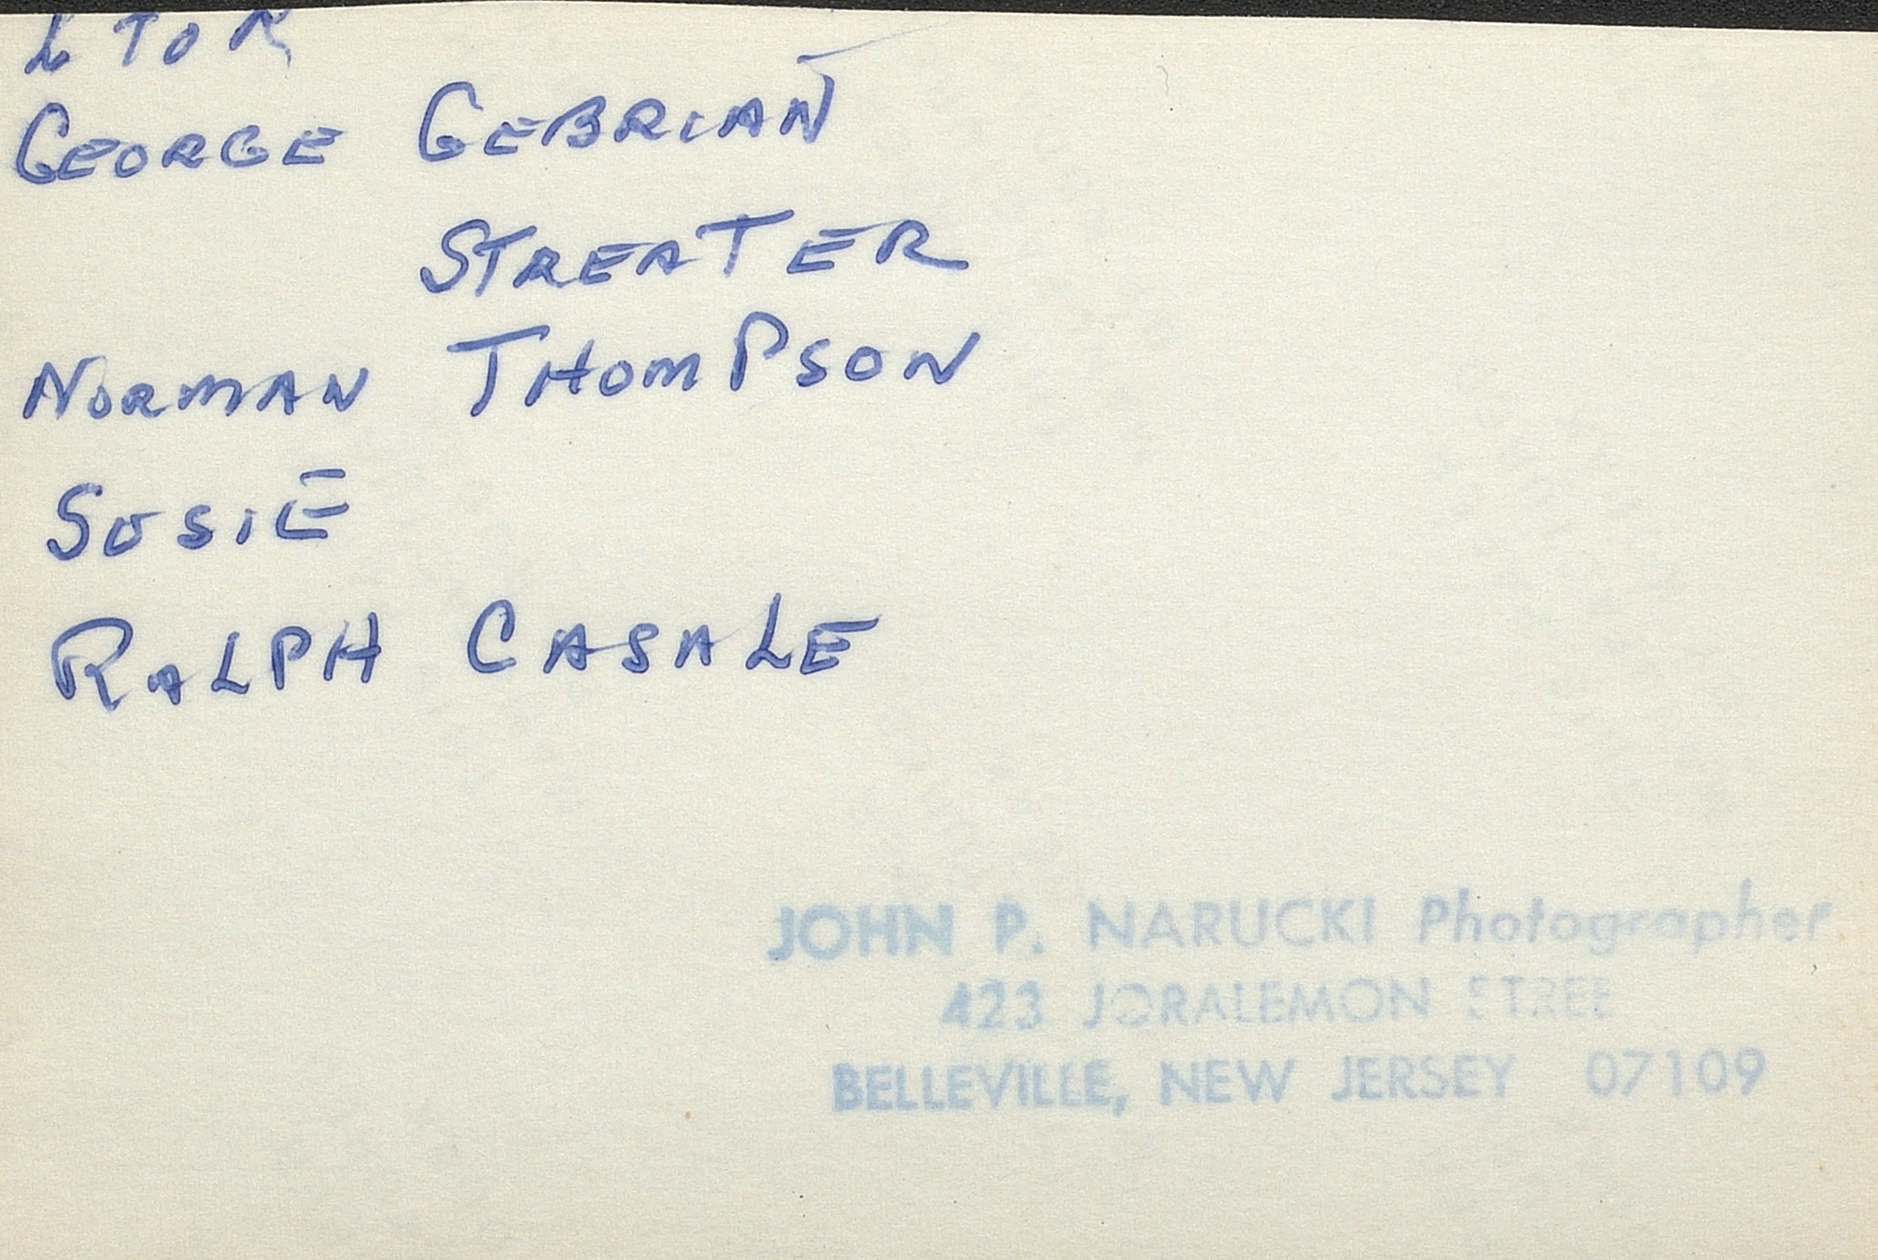 L TO R
GEORGE GEBRIAN
STREATER
NORMAN THOMPSON
SUSIE
RALPH CASALE
JOHN P. NARUCKI Photographer
423 JORALEMON STREE
BELLEVILLE, NEW JERSEY 07109